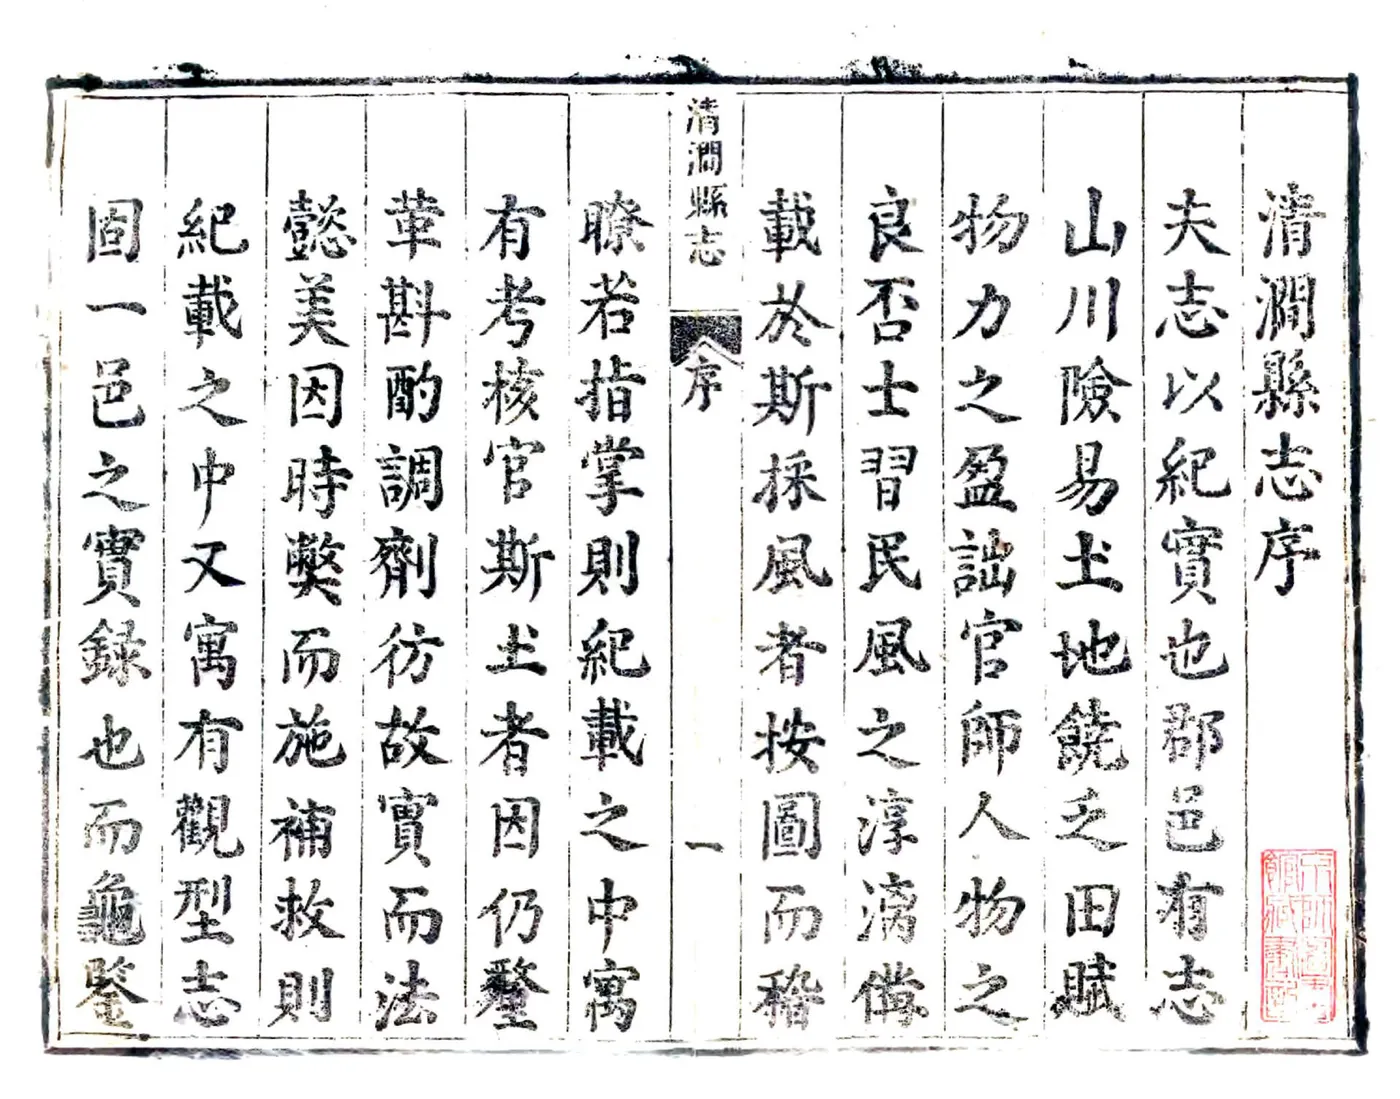 清澗縣志序
夫志以紀實也郡邑有志
山川險易土地饒乏田賦
物力之盈詘官師人物之
良否士習民風之淳漓僃
載於斯採風者按圖而稽
清澗縣志
序
一
瞭若指掌則紀載之中寓
有考核官斯土者因仍釐
革斟酌調劑彷故實而法
懿美因時弊而施補救則
紀載之中又寓有觀型志
固一邑之實録也而龜鑒